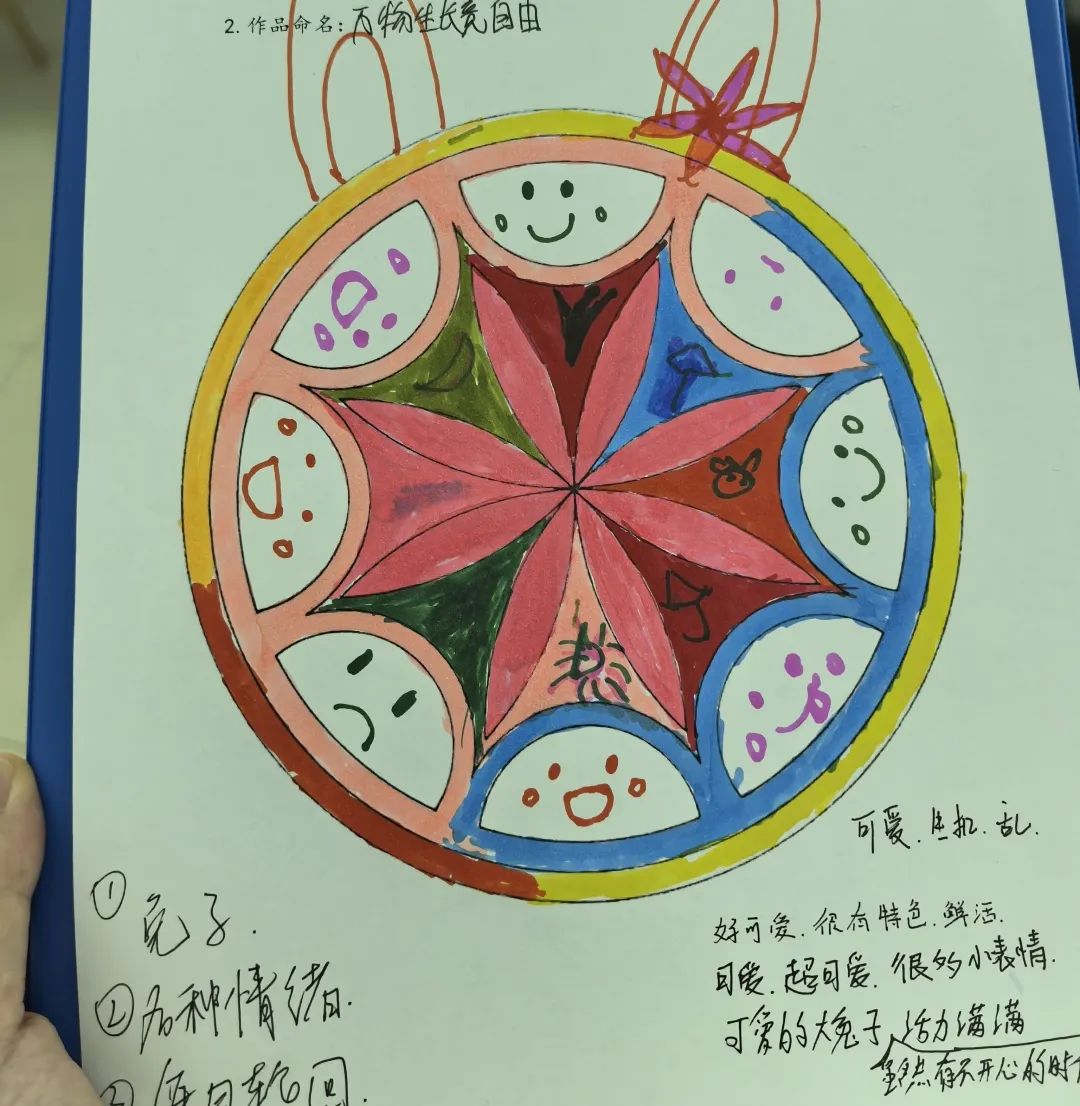 2. 作品命名：万物生长竞自由
可爱、生机、乱、
① 兔子.
好可爱、很有特色、鲜活、
可爱、超可爱、很多小表情.
② 各种情绪.
可爱的大兔子 活力满满
虽然有不开心的时
③ 每日轮回.